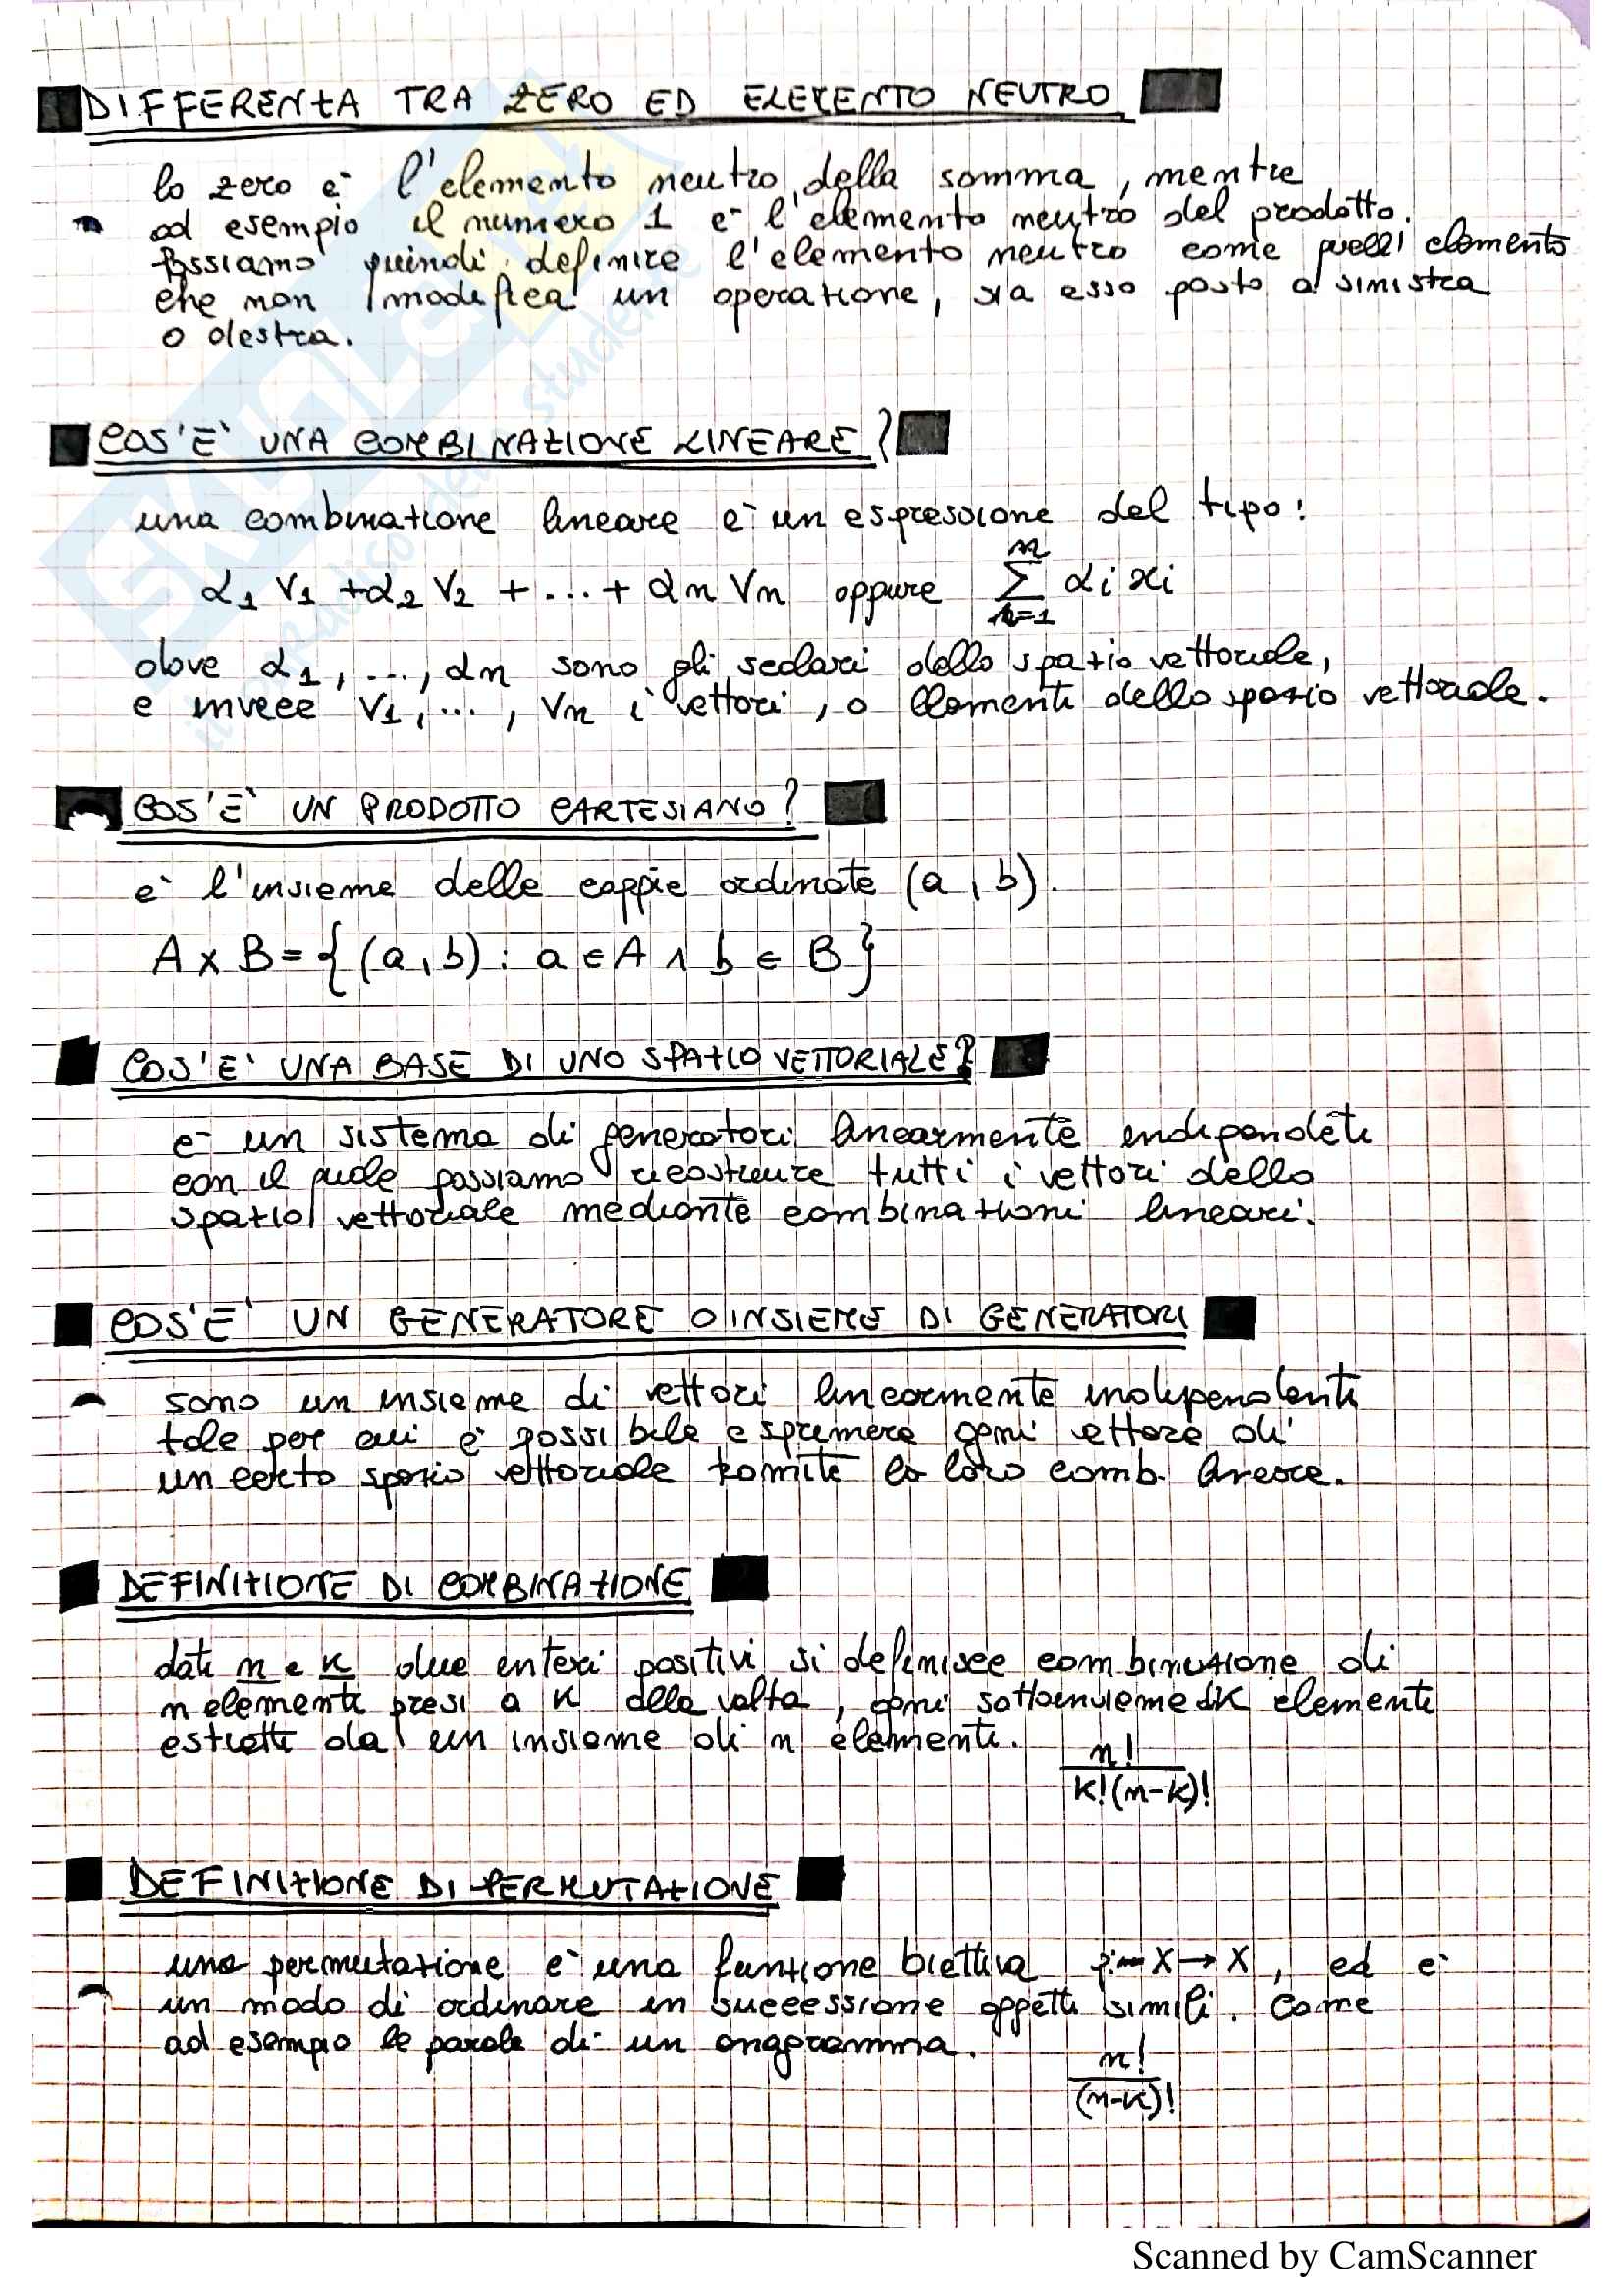 DIFFERENZA TRA ZERO ED ELEMENTO NEUTRO
lo zero è l'elemento neutro della somma, mentre
ad esempio il numero 1 è l'elemento neutro del prodotto.
Possiamo quindi definire l'elemento neutro come quell'elemento
che non modifica un operazione, sia esso posto a sinistra
o destra.
COS'E' UNA COMBINAZIONE LINEARE?
una combinazione lineare è un espressione del tipo:
α1 V1 + α2 V2 + ... + αn Vn oppure n∑n=1 αi xi
dove α1, ..., αn sono gli scalari dello spazio vettoriale,
e invece V1, ..., Vn i vettori, o elementi dello spazio vettoriale.
COS'E' UN PRODOTTO CARTESIANO?
è l'insieme delle coppie ordinate (a, b).
A x B = {(a, b) : a ∈ A ∧ b ∈ B}
COS'E' UNA BASE DI UNO SPAZIO VETTORIALE?
è un sistema di generatori linearmente indipendeti
con il quale possiamo ricostruire tutti i vettori dello
spazio vettoriale mediante combinazioni lineari.
COS'E' UN GENERATORE O INSIEME DI GENERATORI
sono un insieme di vettori linearmente indipendenti
tale per cui è possibile esprimere ogni vettore di
un certo spazio vettoriale tramite la loro comb. lineare.
DEFINIZIONE DI COMBINAZIONE
dati n e K due interi positivi si definisce combinazione di
n elementi presi a K alla volta, ogni sottoinsieme di K elementi
estratti da un insieme di n elementi.
n!
K!(n-k)!
DEFINIZIONE DI PERMUTAZIONE
una permutazione è una funzione biettiva X → X, ed è
un modo di ordinare in successione oggetti simili. Come
ad esempio le parole di un anagramma.
n!
(n-k)!
SKUOLA.net
il lato pratico dello studente
Scanned by CamScanner